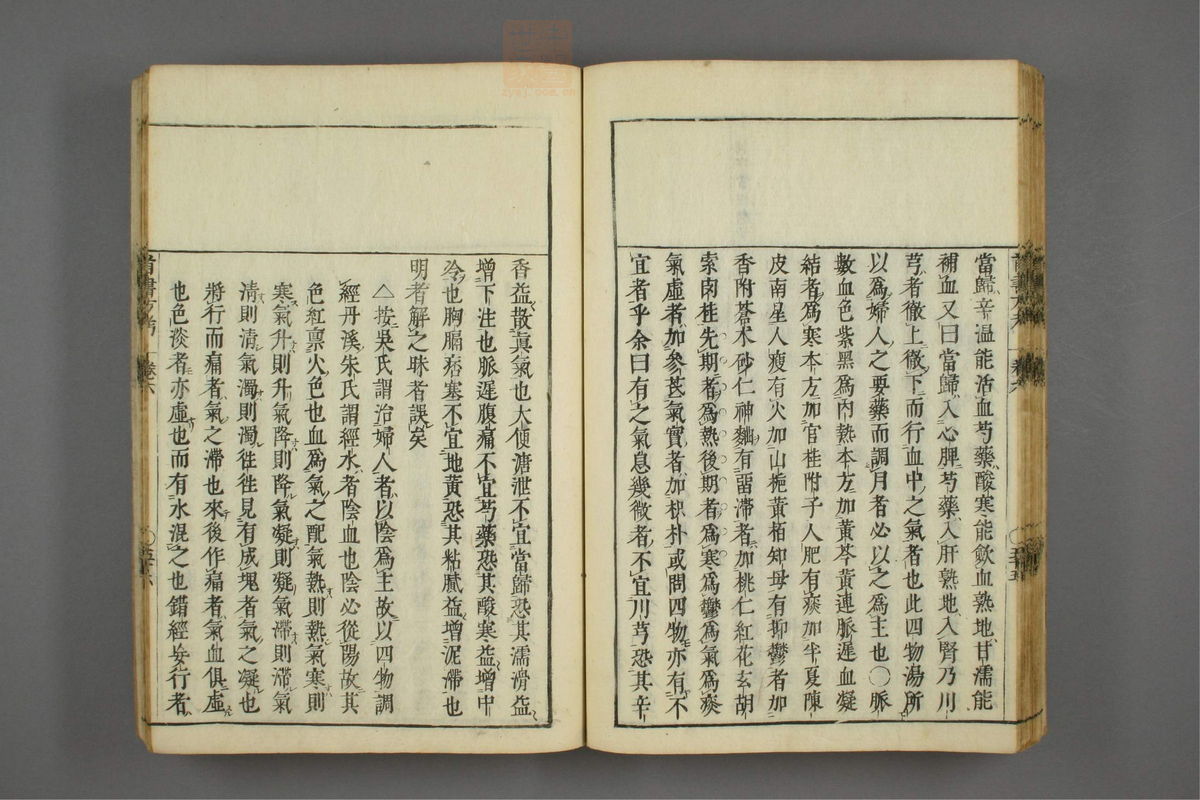 當歸辛温能活血芍藥酸寒能歛血熟地甘濡能
補血又曰當歸入心脾芍藥入肝熟地入腎乃川
芎者徹上徹下而行血中之氣者也此四物湯所
以為婦人之要藥而調月者必以之為主也〇脈
數血色紫黑為內熱本方加黃芩黃連脈遲血凝
結者為寒本方加官桂附子人肥有痰加半夏陳
皮南星人瘦有火加山梔黃栢知母有抑鬱者加
香附蒼朮砂仁神麯有畱滯者加桃仁紅花玄胡
索肉桂先期者為熱後期者為寒為鬱為氣為痰
氣虛者加參芪氣實者加枳朴或問四物亦有不
宜者乎余曰有之氣息幾微者不宜川芎恐其辛
香益散真氣也大便溏泄不宜當歸恐其濡滑益
增下注也脈遲腹痛不宜芍藥恐其酸寒益增中
冷也胸膈痞塞不宜地黃恐其粘膩益增泥滯也
明者解之昧者誤矣
△按吳氏謂治婦人者以陰為主故以四物調
經丹溪朱氏謂經水者陰血也陰必從陽故其
色紅禀火色也血為氣之配氣熱則熱氣寒則
寒氣升則升氣降則降氣凝則凝氣滯則滯氣
清則清氣濁則濁徃徃見有成塊者氣之凝也
將行而痛者氣之滯也來後作痛者氣血俱虛
也色淡者亦虛也而有水混之也錯經妄行者